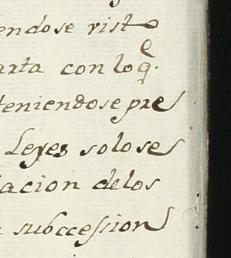 endose visto
arta con lo q.e
teniendose pre
Leyes solo se
lacion delos
subccession